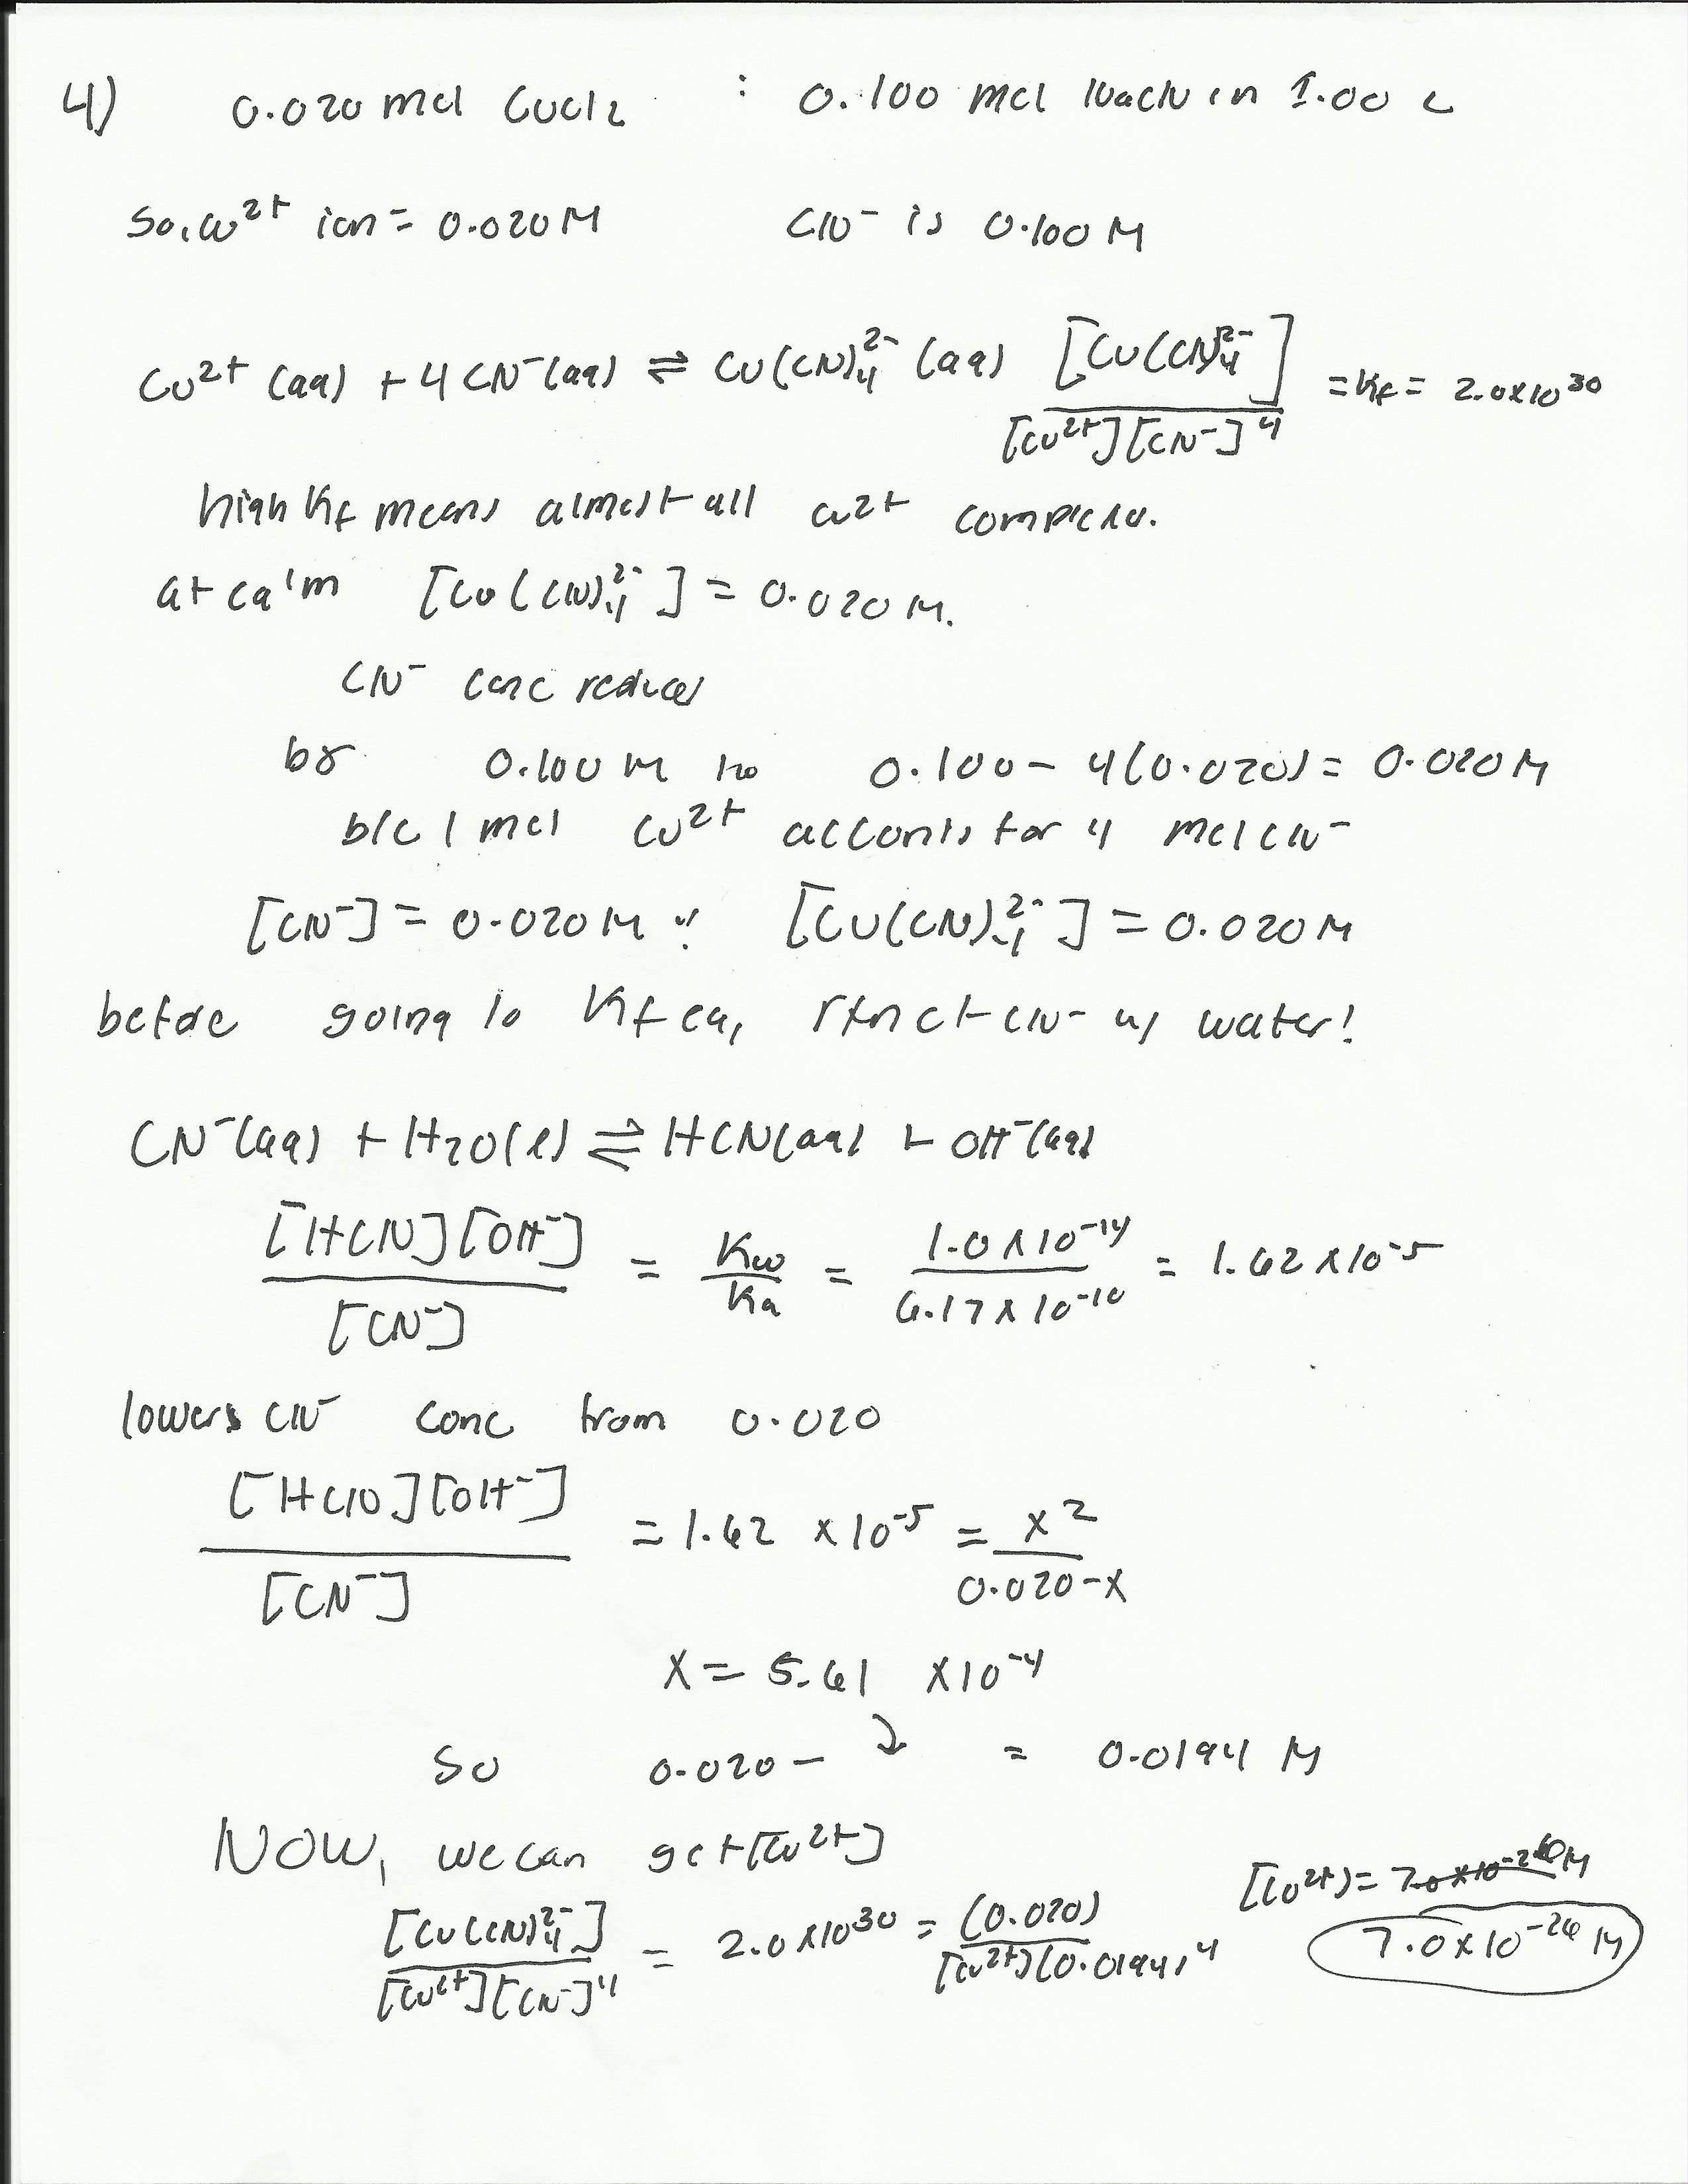 4) 0.020 mol CuCl2 : 0.100 mol NaCN in 1.00 L
So, Cu²⁺ ion = 0.020 M CN⁻ is 0.100 M
Cu²⁺ (aq) + 4 CN⁻ (aq) ⇌ Cu(CN)₄²⁻ (aq) [Cu(CN)₄²⁻] / [Cu²⁺][CN⁻]⁴ = Kf = 2.0x10³⁰
high Kf means almost all Cu²⁺ complexed.
at eq'm [Cu(CN)₄²⁻] = 0.020 M.
CN⁻ conc reduces
by 0.100 M to 0.100 - 4(0.020) = 0.020 M
b/c 1 mol Cu²⁺ acconts for 4 mol CN⁻
[CN⁻] = 0.020 M [Cu(CN)₄²⁻] = 0.020 M
before going to Kf eq, CN⁻ w/ water!
CN⁻(aq) + H₂O(l) ⇌ HCN(aq) + OH⁻(aq)
[HCN][OH⁻] / [CN⁻] = Kw / Ka = 1.0x10⁻¹⁴ / 6.17x10⁻¹⁰ = 1.62x10⁻⁵
lowers CN⁻ conc from 0.020
[HCN][OH⁻] / [CN⁻] = 1.62 x10⁻⁵ = x² / 0.020-x
x = 5.61 x10⁻⁴
So 0.020 - ↓ = 0.0194 M
NOW, we can get [Cu²⁺]
[Cu(CN)₄²⁻] / [Cu²⁺][CN⁻]⁴ = 2.0x10³⁰ = (0.020) / [Cu²⁺](0.0194)⁴
[Cu²⁺] = M
7.0x10⁻²⁶ M